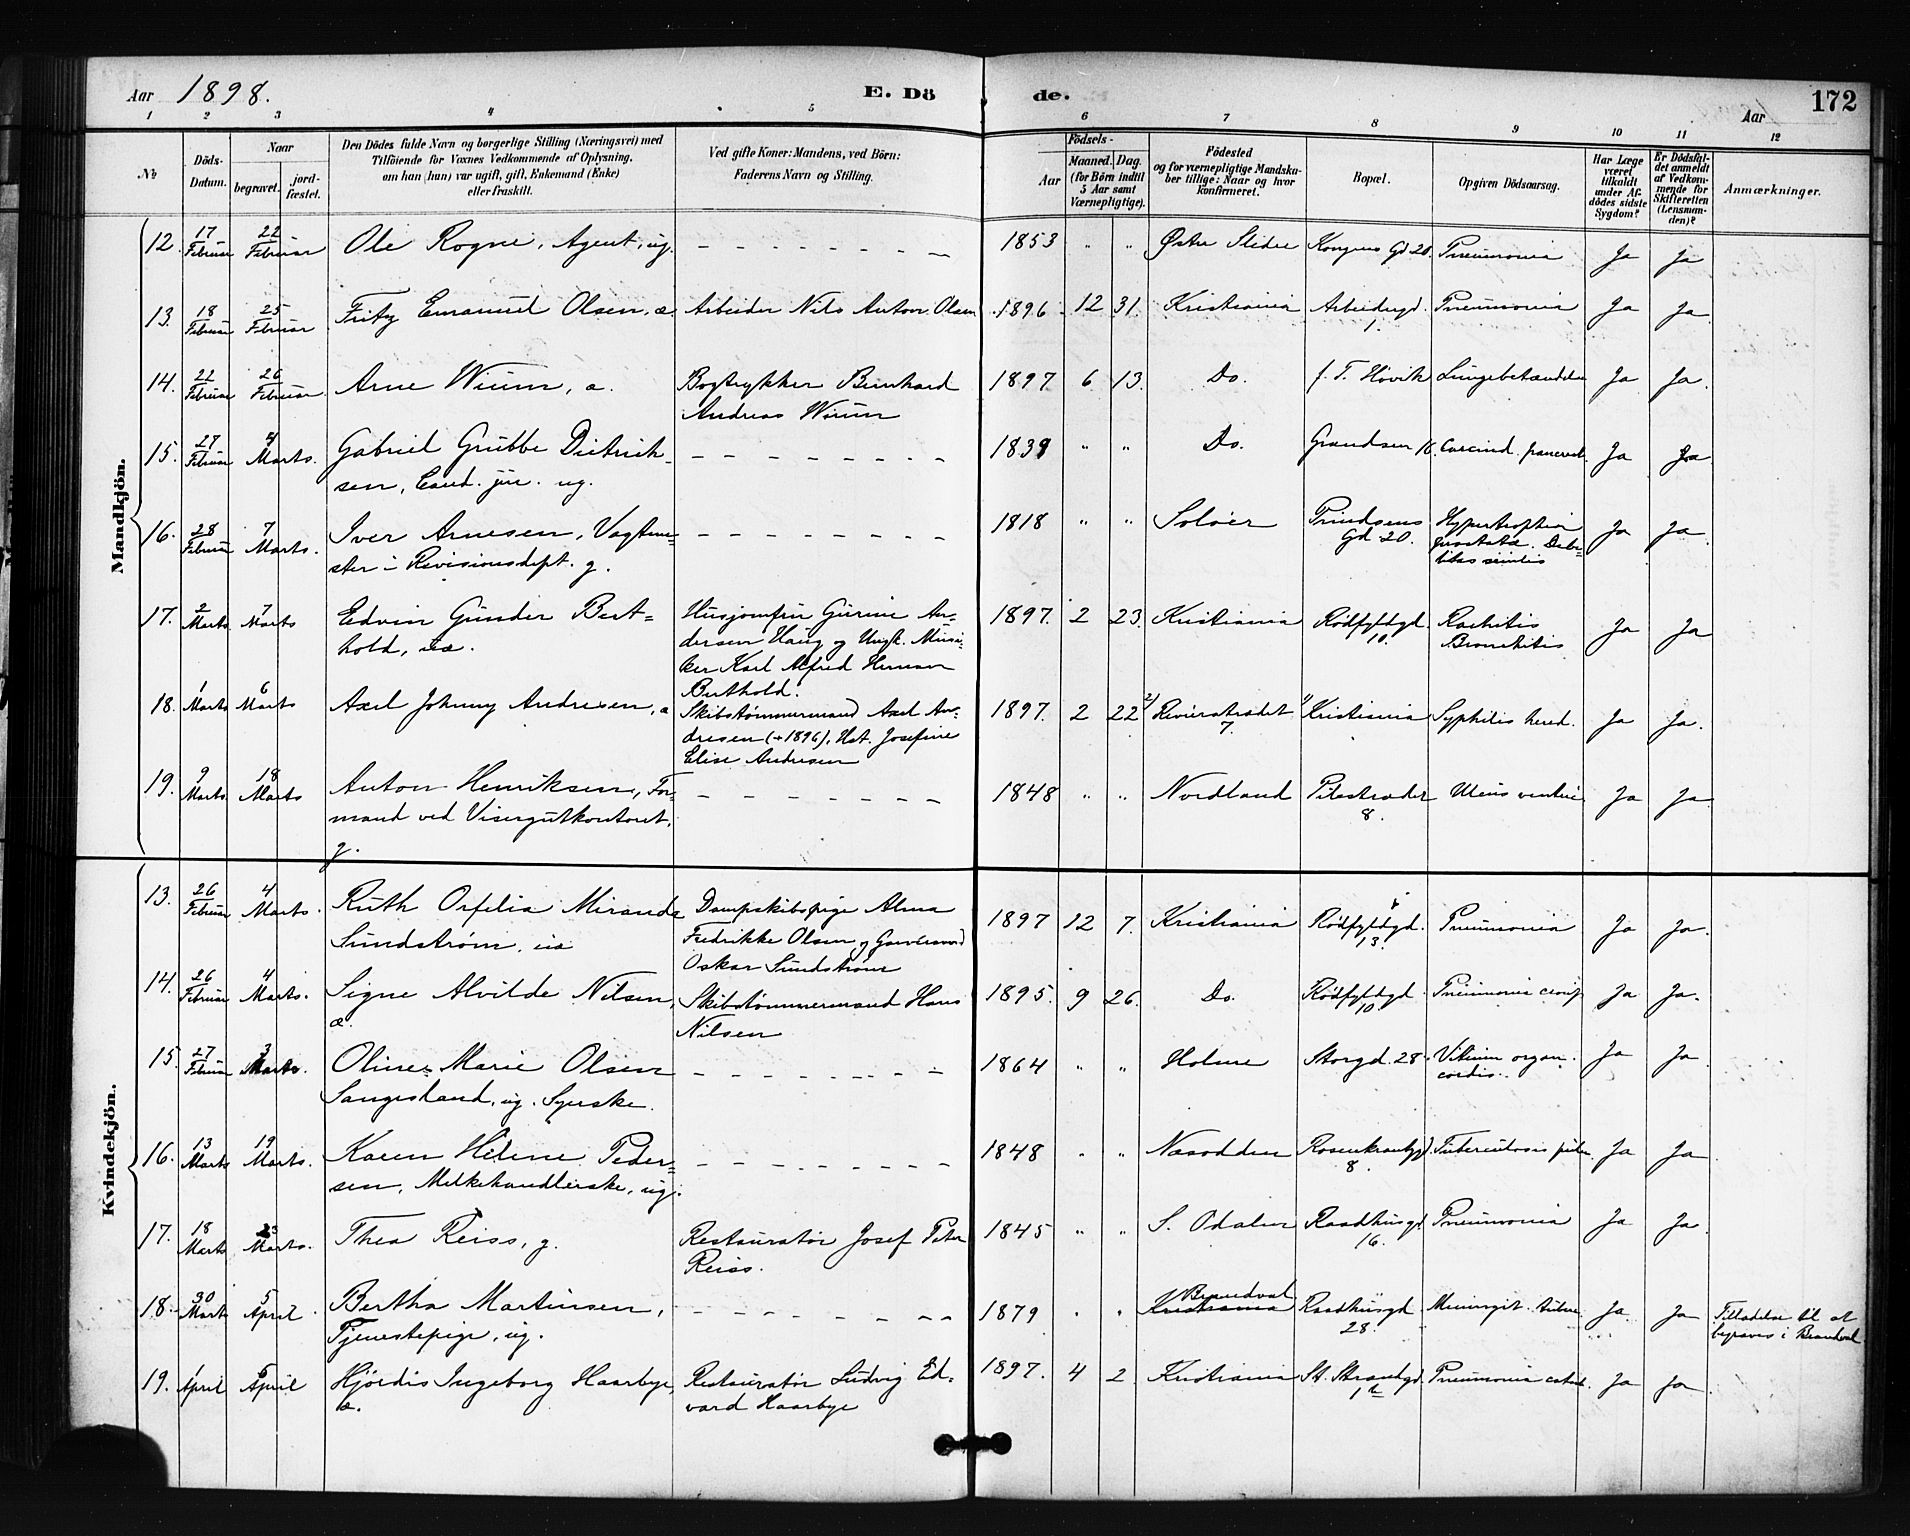 Aar 1898. E. Dö de. Aar 172
1 2 3 4 5 6 7 8 9 10 11 12
No Döds-Datum. Naar begravet. jord-fæstet. Den Dödes fulde Navn og borgerlige Stilling (Næringsvei) med Tilföiende for Voxnes Vedkommende af Oplysning, om han (hun) var ugift, gift, Enkemand (Enke) eller fraskilt. Ved gifte Koner: Mandens, ved Börn: Faderens Navn og Stilling. Födsels- Aar Maaned. Dag. (for Börn indtil 5 Aar samt Værnepligtige). Födested og for værnepligtige Mandskaber tillige: Naar og hvor konfirmeret. Bopæl. Opgiven Dödsaarsag. Har Læge været tilkaldt under Afdödes sidste Sygdom? Er Dödsfaldet anmeldt af Vedkommende for Skifteretten (Lensmanden)? Anmærkninger.
Mandkjön.
12. 17 Februar 22 Februar Ole Rogne, Agent, ug. 1853 " " Østre Slidre Kongens Gd 20. Pneumonia Ja Ja
13. 18 Februar 25 Februar Fritz Emanuel Olsen, æ Arbeider Nils Anton Olsen 1896 12 31. Kristiania Arbeidergd. 1. Pneumonia Ja Ja
14. 22 Februar 26 Februar Arne Wium, æ. Bogtrykker Bernhard 1897 6 13. Do. f. T. Høvik Lungebetændelse Ja Ja.
Andreas Wium
15. 27 Februar 4 Marts. Gabriel Grubbe Dietrich- 1839 " " Do. Grændsen 16. Ja Ja
sen, Cand. jur. ug.
16. 28 Februar 7 Marts. Iver Arnesen, Vagtme- 1818 " " Soløer Prindsens Gd 20. Hypertrophia prostatæ. Debilitas senilis Ja Ja
ster i Revisionsdept. g.
17. 2 Marts. 7 Marts Edvin Gunder Bert- Husjomfru Gurine An- 1897. 2 23. Kristiania Rødfyldgd. 10. Rachitis Bronchitis Ja Ja
hold, uæ. dersen Haug og Ungk. Musi-
ker Karl Alfred Herman
Berthold.
18. 1 Marts 6 Marts Axel Johnny Andresen, æ Skibstømmermand Axel An- 1897. 2 22 Revierstrædet 7. Kristiania Syphilis hered. Ja Ja.
dresen (+1896), Hst. Josefine
Elise Andresen
19. 9 Marts. 18 Marts Anton Henriksen, For- 1848 " " Nordland Pilestrædet 8. Ulcus ventric. Ja Ja
mand ved Visergutkontoret,
g.
Kvindekjön.
13. 26 Februar 4 Marts. Ruth Orfelia Miranda Dampskibspige Alma 1897 12 7. Kristiania Rødfyldgd. 13. Pneumonia Ja Ja.
Sundstrøm, uæ Fredrikke Olsen og
Oskar Sundstrøm
14. 26 Februar 4 Marts. Signe Alvilde Nilsen, Skibstømmermand Hans 1895. 9 26. Do. Rødfyldgd. 10. Pneumonia croup Ja Ja.
æ. Nilsen
15. 27 Februar 3 Marts. Oline Marie Olsen 1864 " " Holme Storgd. 28. Vitium organ. cordis. Ja Ja
Sangesland, ug. Syerske.
16. 13 Marts 19 Marts. Karen Helene Peder- 1848 " " Næsodden Rosenkrantzgd 8. Tuberculosis pulm. Ja Ja
sen, Melkehandlerske, ug.
17. 18 Marts 23 Marts. Thea Reiss, g. Restauratør Josef Peter 1845 " " S. Odalen Raadhusgd 16. Pneumonia Ja Ja
Reiss.
18. 30 Marts 5 April Bertha Martinsen, 1879 " " Kristiania Brandval Raadhusgd 28. Meningit. tuberc. Ja Ja Tilladelse til at
Tjenestepige, ug. begraves i Brandval
19. April 5 April Hjördis Ingeborg Haarbye, Restauratør Ludvig Ed- 1897. 4 2 Kristiania St. Strandgd. Pneumonia catarrh. Ja Ja
æ. vard Haarbye